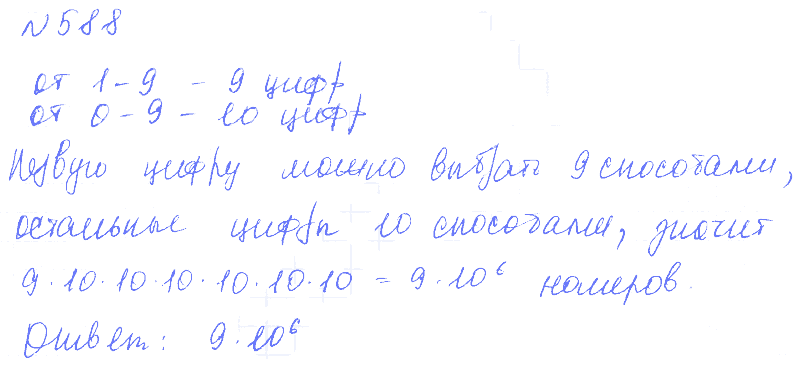 №588
от 1-9 - 9 цифр
от 0-9 - 10 цифр
Первую цифру можно выбрать 9 способами,
остальные цифры 10 способами, значит
9·10·10·10·10·10·10 = 9·10⁶ номеров.
Ответ: 9·10⁶